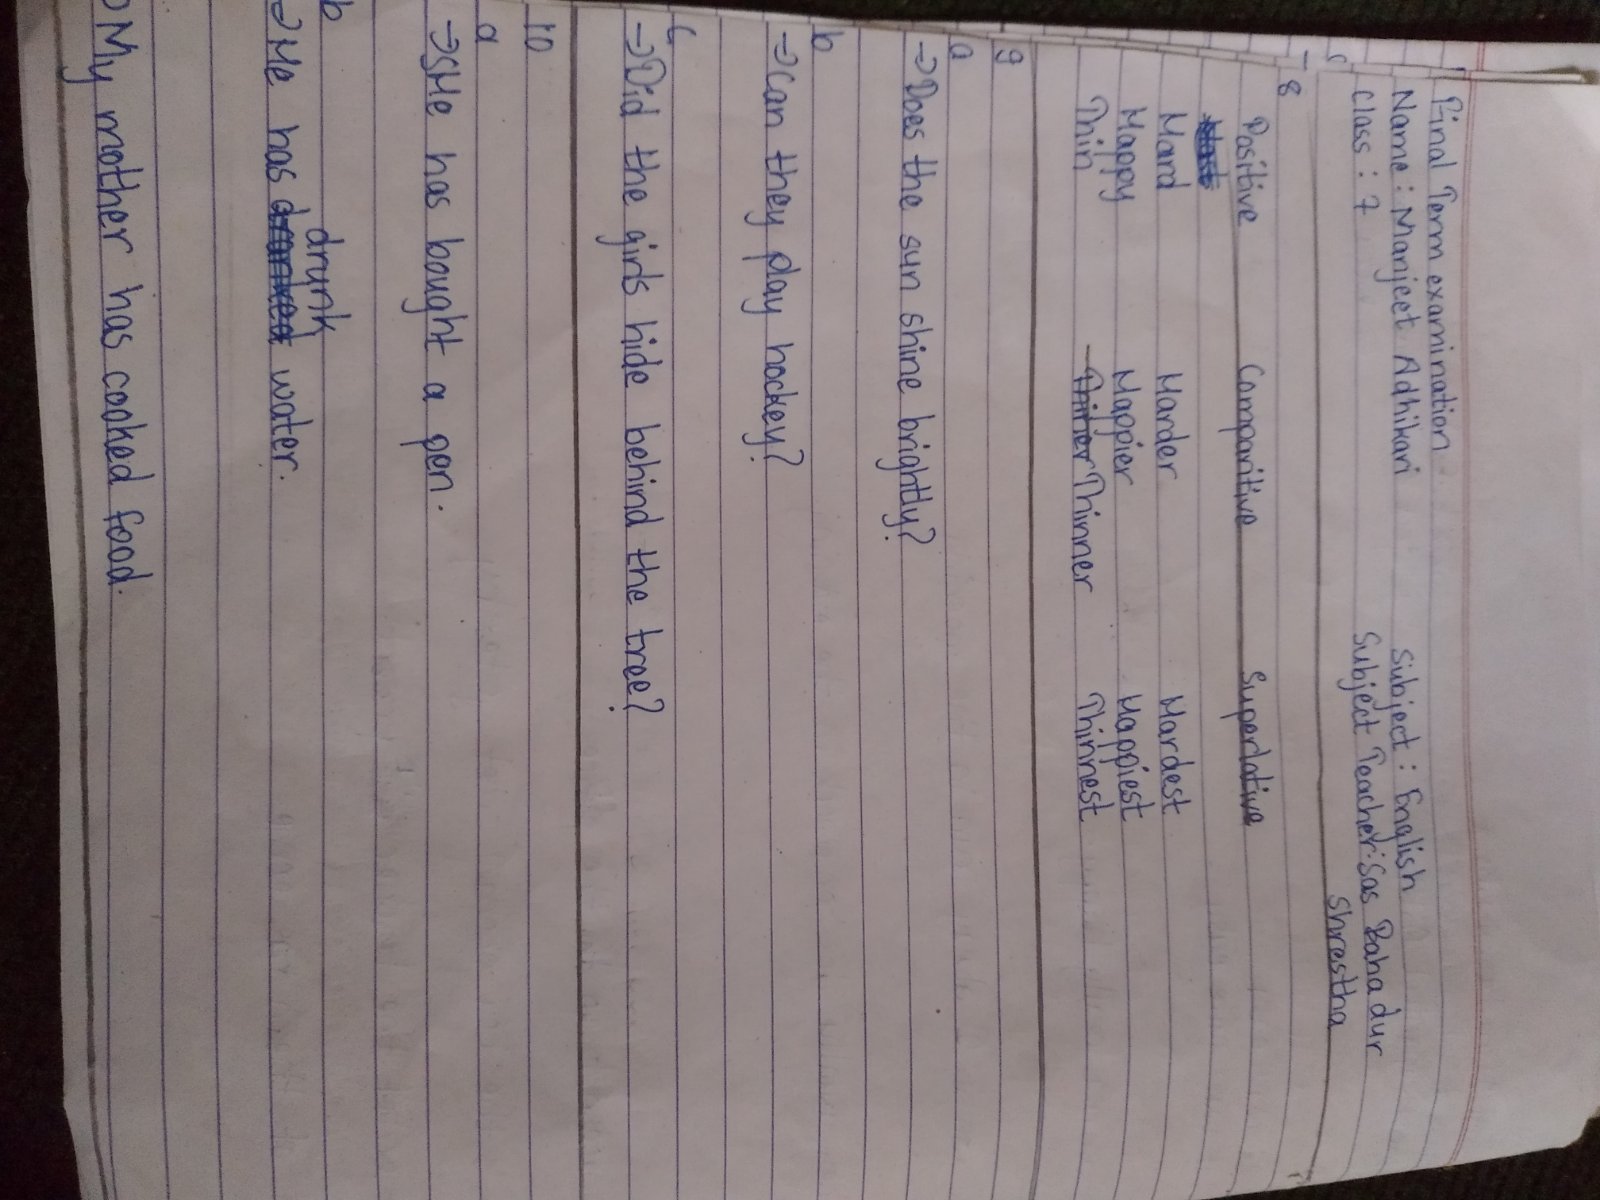 Final Term examination
Name : Manjeet Adhikari Subject : English
Class : 7 Subject Teacher : Sas Bahadur
Shrestha
8
Positive Comparitive Superlative
Hard Harder Hardest
Happy Happier Happiest
Thin Thinner Thinnest
9
a
→ Does the sun shine brightly?
b
→ Can they play hockey?
c
→ Did the girls hide behind the tree?
10
a
→ SHe has bought a pen.
b
drunk
→ He has water.
→ My mother has cooked food.